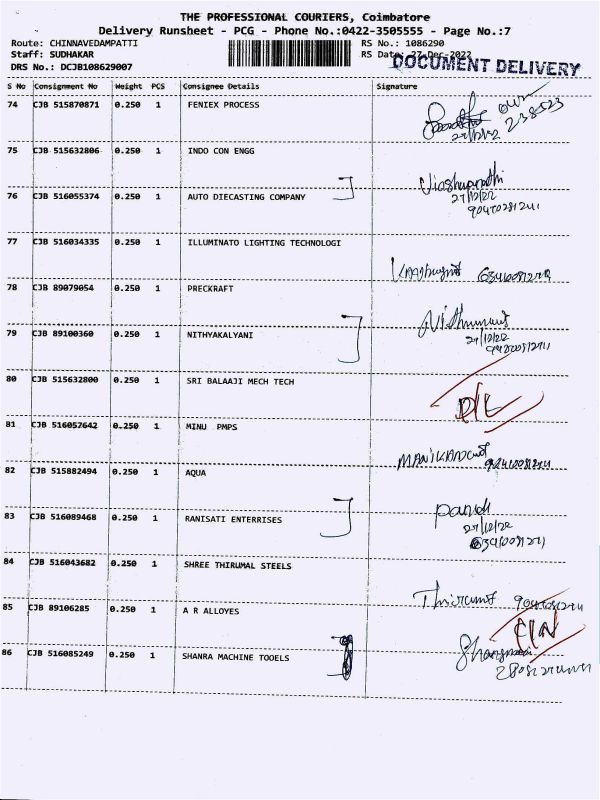 THE PROFESSIONAL COURIERS, Coimbatore
Delivery Runsheet - PCG - Phone No.:0422-3505555 - Page No.:7
Route: CHINNAVEDAMPATTI RS No.: 1086290
Staff: SUDHAKAR RS Date: 27-Dec-2022
DRS No.: DCJB108629007 DOCUMENT DELIVERY
S No Consignment No Weight PCS Consignee Details Signature
74 CJB 515870871 0.250 1 FENIEX PROCESS
27/12/22
75 CJB 515632806 0.250 1 INDO CON ENGG
76 CJB 516055374 0.250 1 AUTO DIECASTING COMPANY
27/12/22
77 CJB 516034335 0.250 1 ILLUMINATO LIGHTING TECHNOLOGI
78 CJB 89079054 0.250 1 PRECKRAFT
79 CJB 89100360 0.250 1 NITHYAKALYANI
27/12/22
80 CJB 515632800 0.250 1 SRI BALAAJI MECH TECH
D/L
81 CJB 516052642 0.250 1 MINU PMPS
82 CJB 515882494 0.250 1 AQUA
83 CJB 516089468 0.250 1 RANISATI ENTERRISES
27/12/22
84 CJB 516043682 0.250 1 SHREE THIRUMAL STEELS
85 CJB 89106285 0.250 1 A R ALLOYES
86 CJB 516085249 0.250 1 SHANRA MACHINE TOOELS